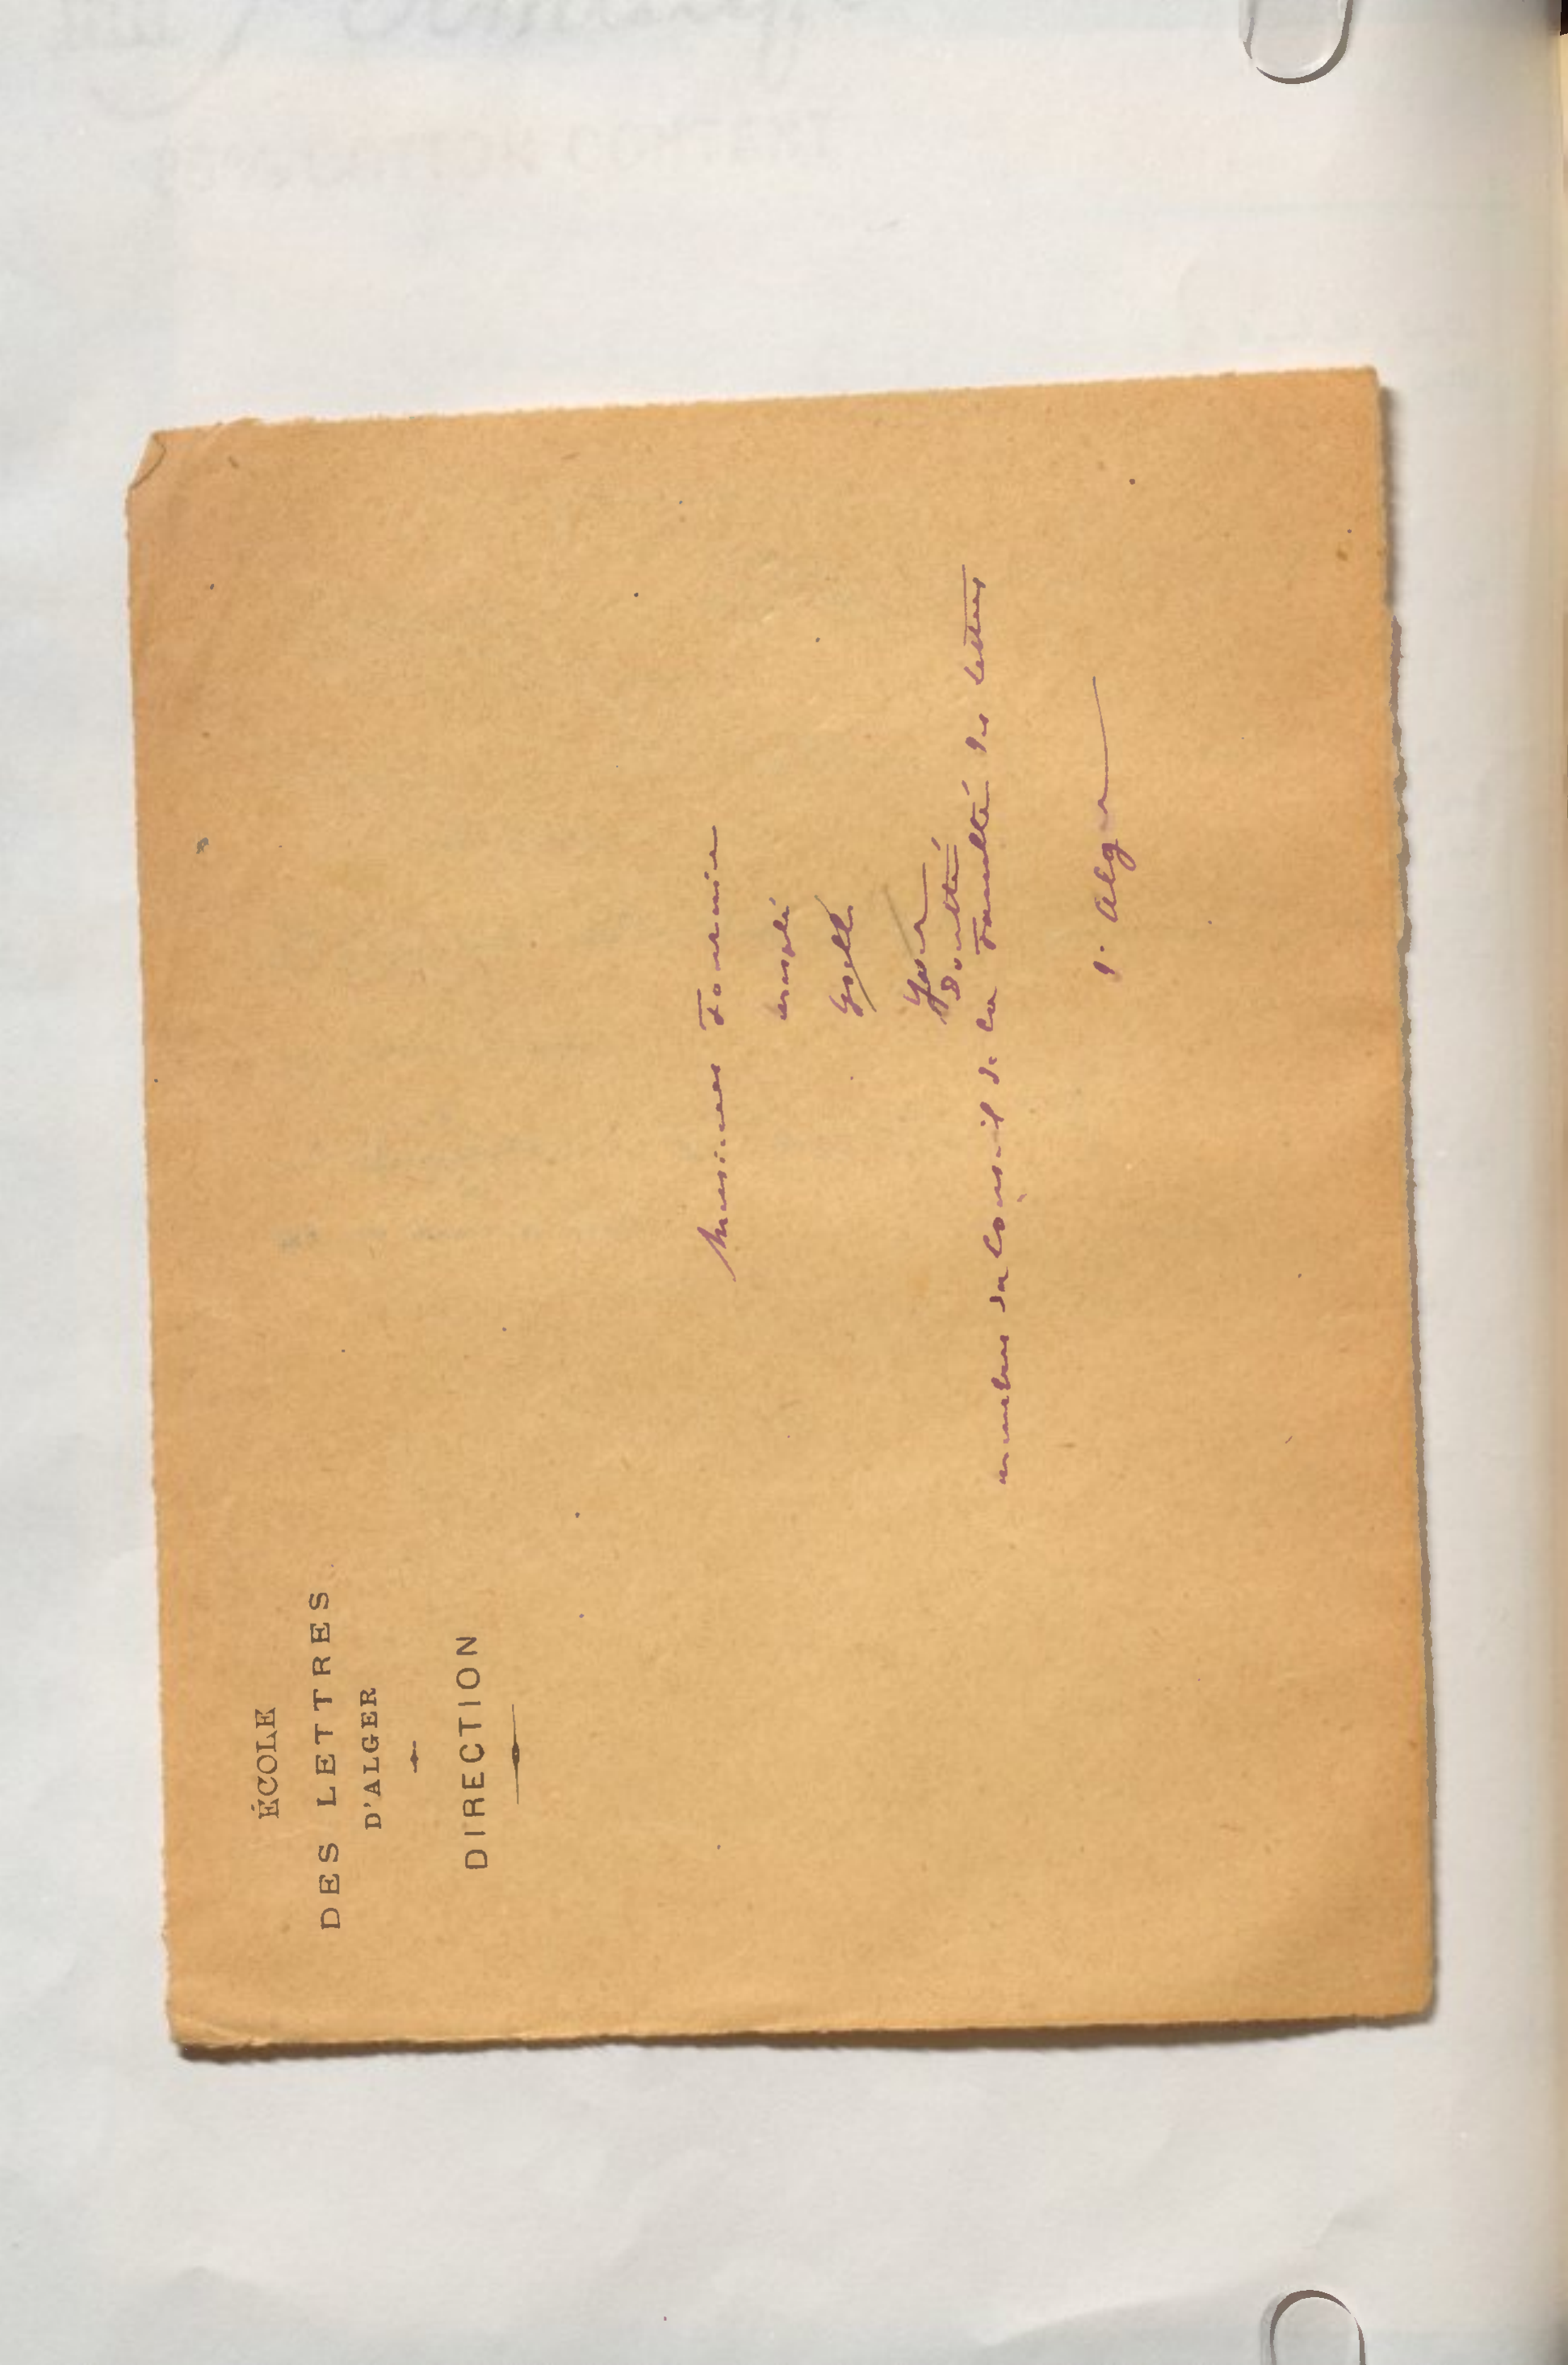 ÉCOLE
DES LETTRES
D'ALGER
DIRECTION
Messieurs Fournier
Mesplé
Gsell
Yver
Doutté
membres du Conseil de la Faculté des lettres
d'Alger